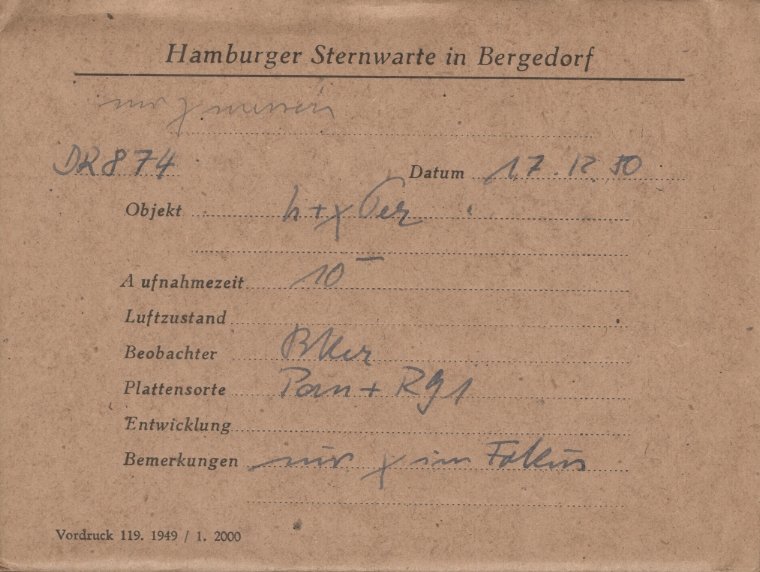 Hamburger Sternwarte in Bergedorf
nur χ messen
DR 874 Datum 17.12.50
Objekt h+χ Per
Aufnahmezeit 10 m
Luftzustand
Beobachter
Plattensorte Pan + RG1
Entwicklung
Bemerkungen nur χ im Fokus
Vordruck 119. 1949 / 1. 2000